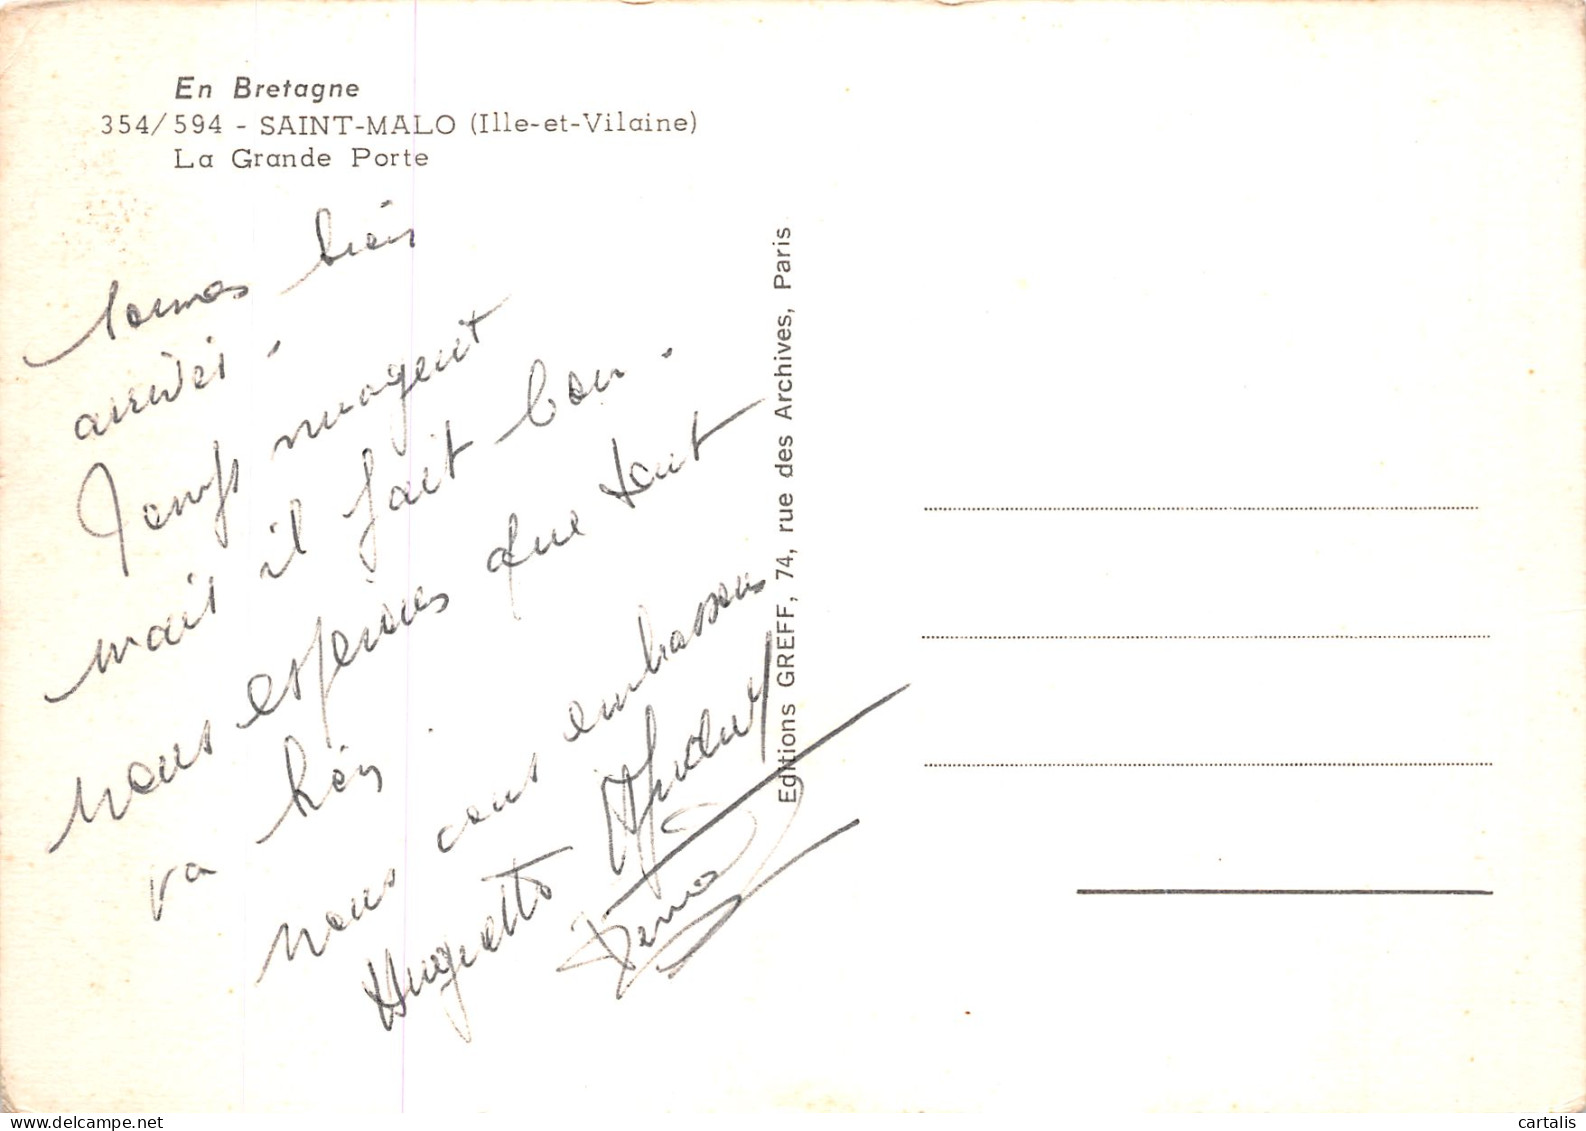 En Bretagne
354/594 - SAINT-MALO (Ille-et-Vilaine)
La Grande Porte
sommes bien
arrivés.
Temps nuageux
mais il fait bon.
nous espérons que tout
va bien.
nous vous embrassons
Huguette
Editions GREFF, 74, rue des Archives, Paris
delcampe.net
cartalis